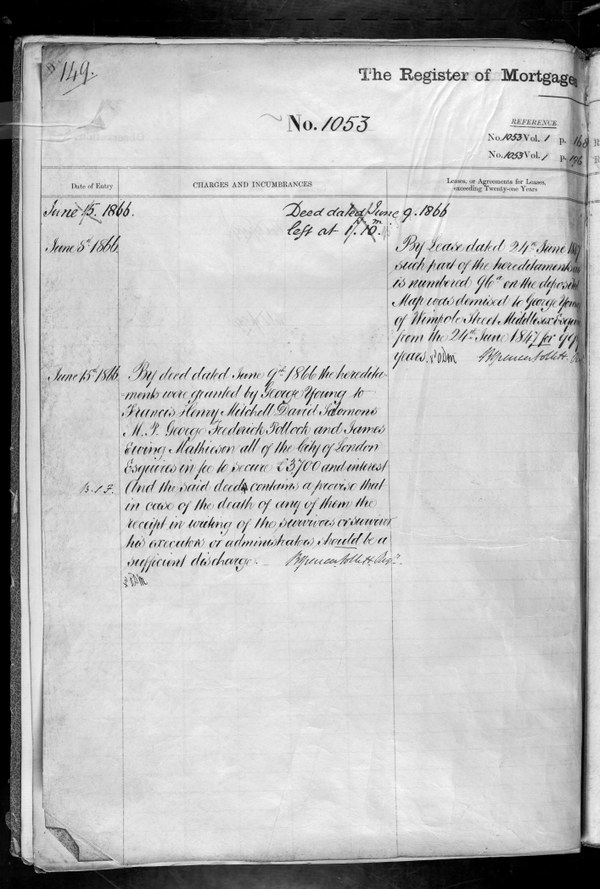 149.
The Register of Mortgages
No. 1053
REFERENCE.
No. 1053 Vol. 1 p. 168
No. 1053 Vol. 1 p. 196
Date of Entry
CHARGES AND INCUMBRANCES
Leases, or Agreements for Leases,
exceeding Twenty-one Years
June 15. 1866.
Deed dated June 9. 1866
left at 1.10
June 5th 1866
By Lease dated 24th June 1847
such part of the hereditaments
is numbered 96a on the deposited
Map was demised to George Young
of Wimpole Street Middlesex Esquire
from the 24th June 1847 for 99
years.
June 15th 1866
By deed dated June 9th 1866 the heredita-
ments were granted by George Young to
Francis Henry Mitchell David Salomons
M. P. George Frederick Pollock and James
Ewing Mathieson all of the City of London
Esquires in fee to secure £3700 and interest
And the said deed contains a proviso that
in case of the death of any of them the
receipt in writing of the survivors or survivor
his executors or administrators should be a
sufficient discharge.